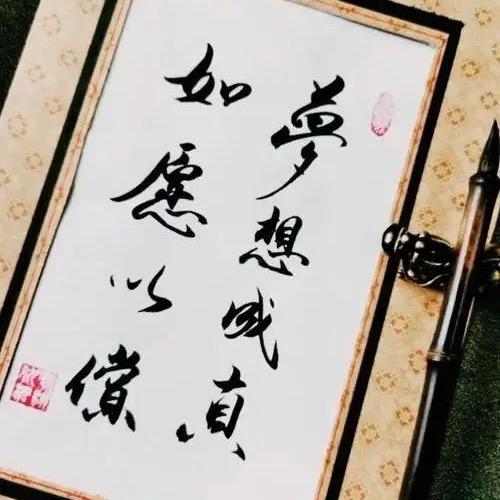 夢想成真
如愿以償